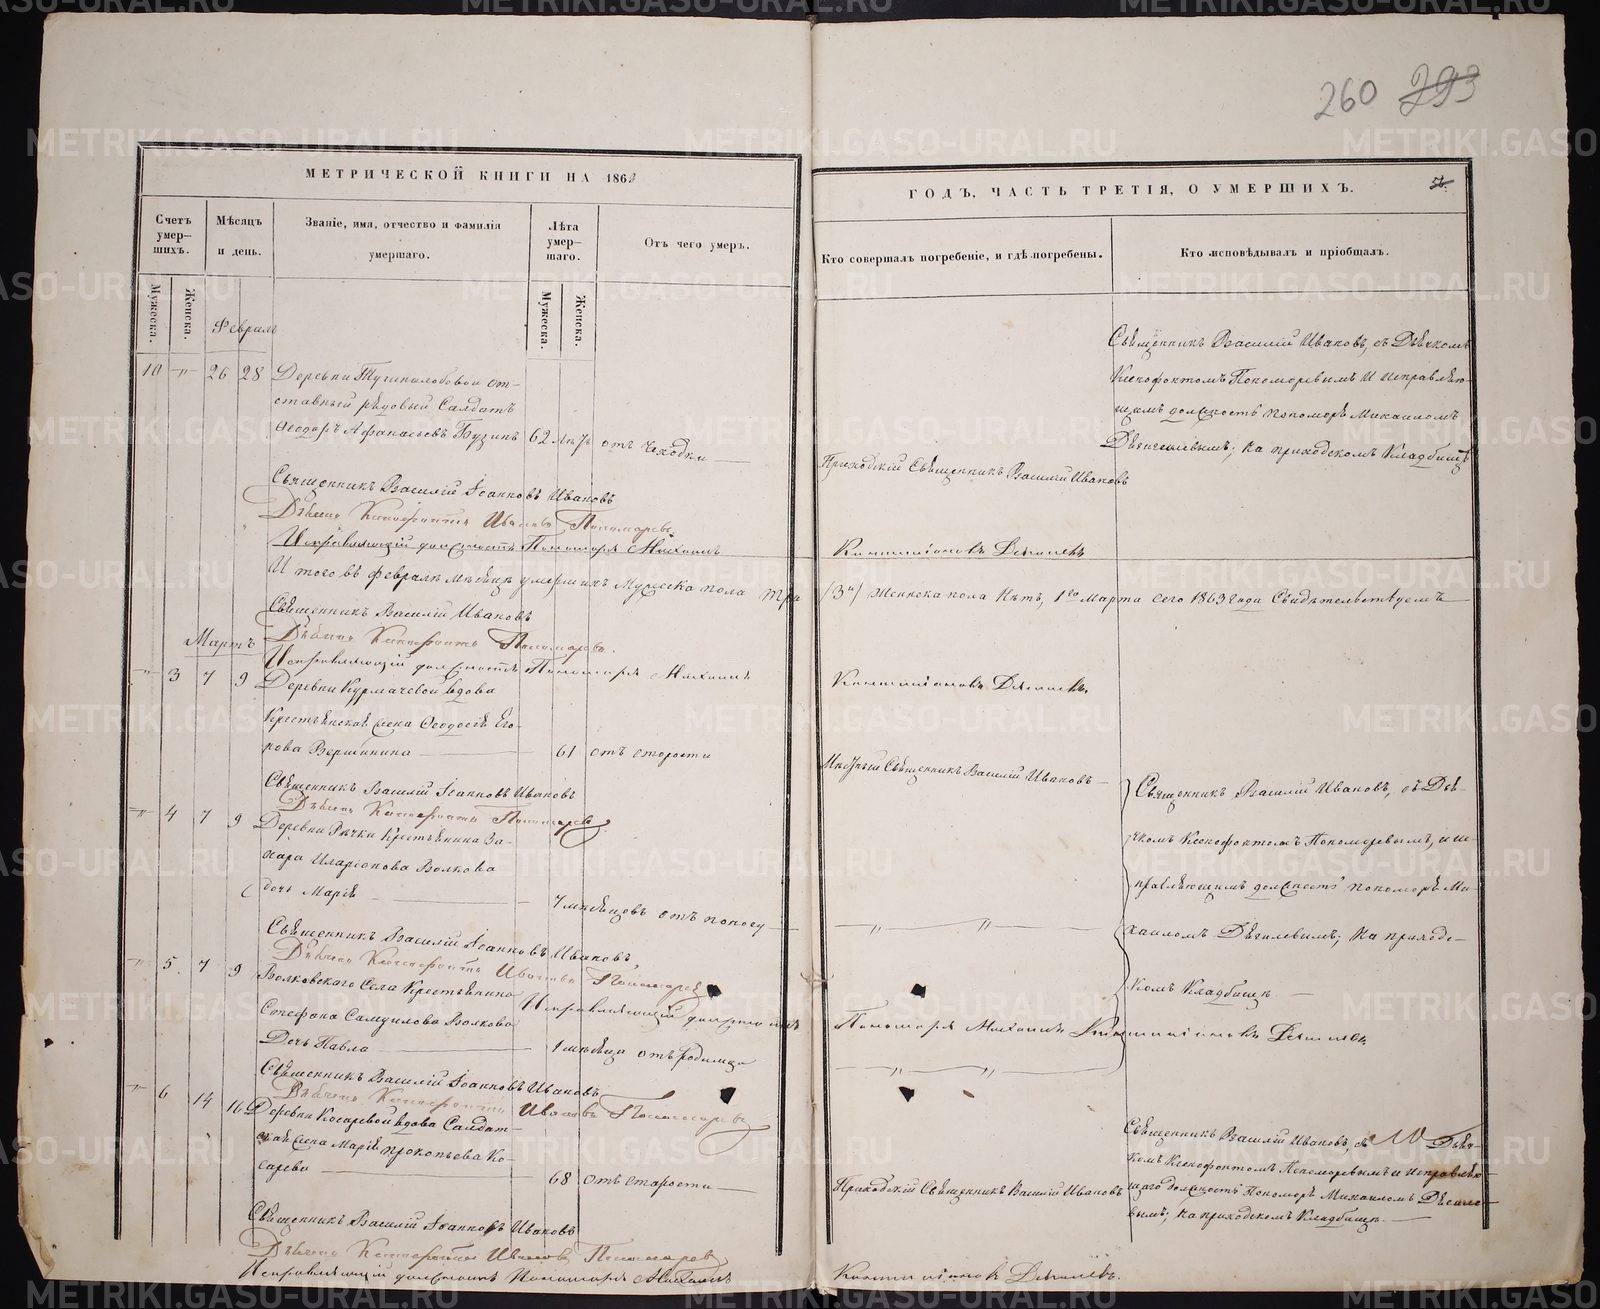 260 293
МЕТРИЧЕСКОЙ КНИГИ НА 1863
ГОДЪ, ЧАСТЬ ТРЕТІЯ, О УМЕРШИХЪ.
Счетъ умер-шихъ.
Мѣсяцъ и день.
Званіе, имя, отчество и фамилія умершаго.
Лѣта умер-шаго.
Отъ чего умеръ.
Кто совершалъ погребеніе, и гдѣ погребены.
Кто исповѣдывалъ и пріобщалъ.
Мужеска.
Женска.
Мужеска.
Женска.
Февраль
10 -"- 26 28 Деревни Тушналобовой от-
ставный рядовый Солдатъ
Ѳеодоръ Афанасьевъ Бузинъ 62 лѣтъ отъ чаходки
Приходскій Священникъ Василій Ивановъ
Священникъ Василій Ивановъ, съ Дьячкомъ
Ксенофонтомъ Пономаревымъ и исправляю-
щимъ должность пономаря Михаиломъ
на приходскомъ Кладбищѣ
Священникъ Василій Іоанновъ Ивановъ
Дьячекъ Ксенофонтъ Ивановъ Пономаревъ
Исправляющій должность Пономаря Михаилъ
Итого въ февралѣ мѣсяцѣ умершихъ Мужеска пола три (3) Женска пола нѣтъ, 1го Марта сего 1863 года Свидѣтельствуемъ
Священникъ Василій Ивановъ
Дьячекъ Ксенофонтъ Пономаревъ.
Исправляющій должность Пономаря Михаилъ
Мартъ
-"- 3 7 9 Деревни Курмачевой вдова
Крестьянская жена Ѳеодосія Его-
рова Вершинина 61 отъ старости
Мѣстный Священникъ Василій Ивановъ
Священникъ Василій Іоанновъ Ивановъ
Дьячекъ Ксенофонтъ Пономаревъ
-"- 4 7 9 Деревни Рѣчки Крестьянина За-
хара Иларіонова Волкова
дочь Марія 7 мѣсяцовъ отъ поносу
-"- -"-
Священникъ Василій Ивановъ, съ Дья-
чкомъ Ксенофонтомъ Пономаревымъ, и ис-
правляющимъ должность пономаря Ми-
хаиломъ на приходс-
комъ Кладбищѣ
Священникъ Василій Іоанновъ Ивановъ
Дьячекъ Ксенофонтъ Ивановъ Пономаревъ
-"- 5. 7 9 Волковскаго Села Крестьянина
Стефана Самуилова Волкова
Дочь Павла 1 мѣсяца отъ родимца
-"- -"-
Исправляющій должность
Пономаря Михаилъ
Священникъ Василій Іоанновъ Ивановъ
Дьячекъ Ксенофонтъ Ивановъ Пономаревъ
-"- 6 14 16 Деревни Косаревой вдова Солдат-
ская жена Марія Прокопьева Ко-
сарева 68 отъ старости
Приходскій Священникъ Василій Ивановъ
Священникъ Василій Ивановъ, съ Дьяч-
комъ Ксенофонтомъ Пономаревымъ и исправляю-
щаго должность Пономаря Михаиломъ
на приходскомъ Кладбищѣ
Священникъ Василій Іоанновъ Ивановъ
Дьячекъ Ксенофонтъ Ивановъ Пономаревъ
Исправляющій должность Пономаря Михаилъ
METRIKI.GASO-URAL.RU